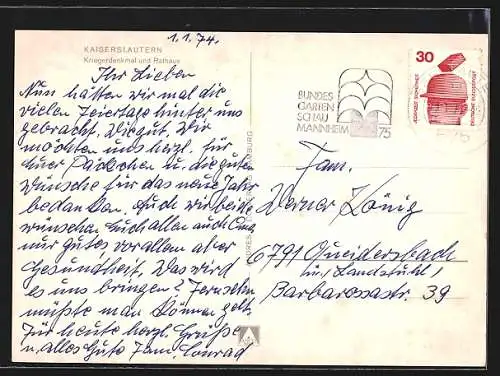 1.1.74.
KAISERSLAUTERN
Kriegerdenkmal und Rathaus
Ihr Lieben
Nun hätten wir mal die
vielen Feiertage hinter uns
gebracht. Wie gut. Wir
möchten uns herzl. für
Euer Päckchen u. die guten
Wünsche für das neue Jahr
bedanken. Auch wir beide
wünschen Euch allen auch
nur gutes, vor allem aber
Gesundheit. Was wird
es uns bringen? Fernsehen
müßte man können gelt.
Für heute herzl. Grüße
u. alles Gute Fam. Conrad
30
DEUTSCHE BUNDESPOST
BUNDES
GARTEN
SCHAU
MANNHEIM 75
Fam.
Werner König
6791 Queidersbach
bei Landstuhl
Barbarossastr. 39